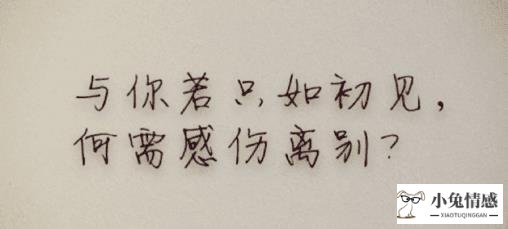 与你若只如初见，
何需感伤离别？
小兔情感
XIAOTUQINGGAN